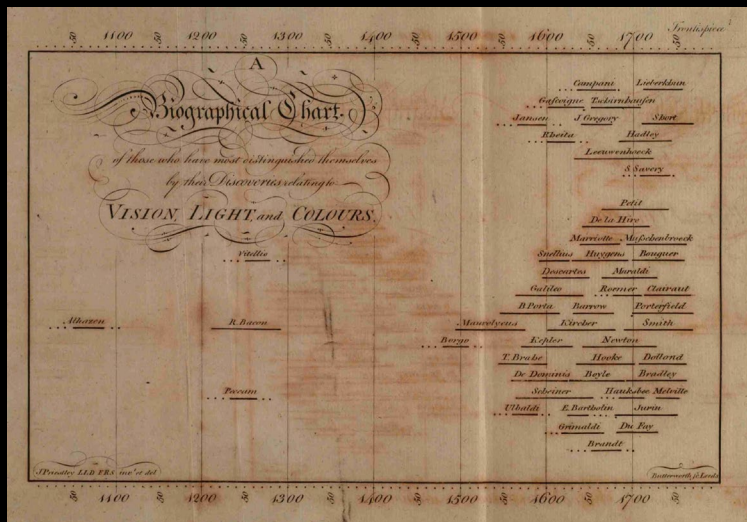 Frontispiece
50 1100 50 1200 50 1300 50 1400 50 1500 50 1600 50 1700 50
A
Biographical Chart.
of those who have most distinguished themselves
by their Discoveries relating to
VISION, LIGHT, and COLOURS.
Campani Lieberkhin
Gascoigne Tschirnhausen
Jansen J Gregory Short
Rheita Hadley
Leeuwenhoeck
S. Savery
Petit
De la Hire
Marriotte Musschenbroeck
Vitellio Snellius Huygens Bouguer
Descartes Maraldi
Galileo Roemer Clairaut
B. Porta Barrow Porterfield
Alhazen R. Bacon Maurolycus Kircher Smith
Borgo Kepler Newton
T. Brahe Hooke Dollond
De Dominis Boyle Bradley
Peccam Scheiner Hauksbee Melville
Ubaldi E. Bartholin Jurin
Grimaldi Du Fay
Brandt
J Priestley LLD FRS inv.t et del
50 1100 50 1200 50 1300 50 1400 50 1500 50 1600 50 1700 50